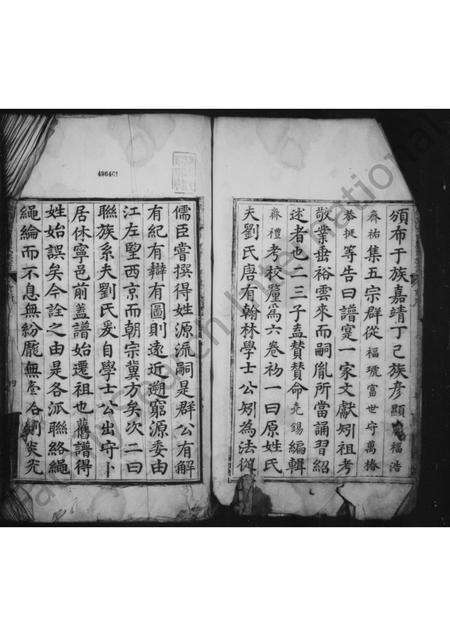 頒布于族嘉靖丁己族彥顯福浩
齋祐集五宗群從福瓛富世守萬椿
等告曰譜寔一家文獻矧祖考
敬業垂裕雲來而嗣胤所當誦習紹
述者也二三子盍贊贊命先錫編輯
齋禮考校釐爲六卷初一曰原姓氏
夫劉氏唐有翰林學士公矧爲法從
儒臣嘗撰得姓源流嗣是群公有解
有紀有辯有圖則遠近朔窮源委由
江左堅西京而朝宗冀方矣次二曰
聯族系夫劉氏爰自學士公出守卜
居休寧邑前蓋譜始遷祖也舊譜得
姓始誤矣今詮之由是各派聯絡繩
繩綸而不息無紛龐無
496401